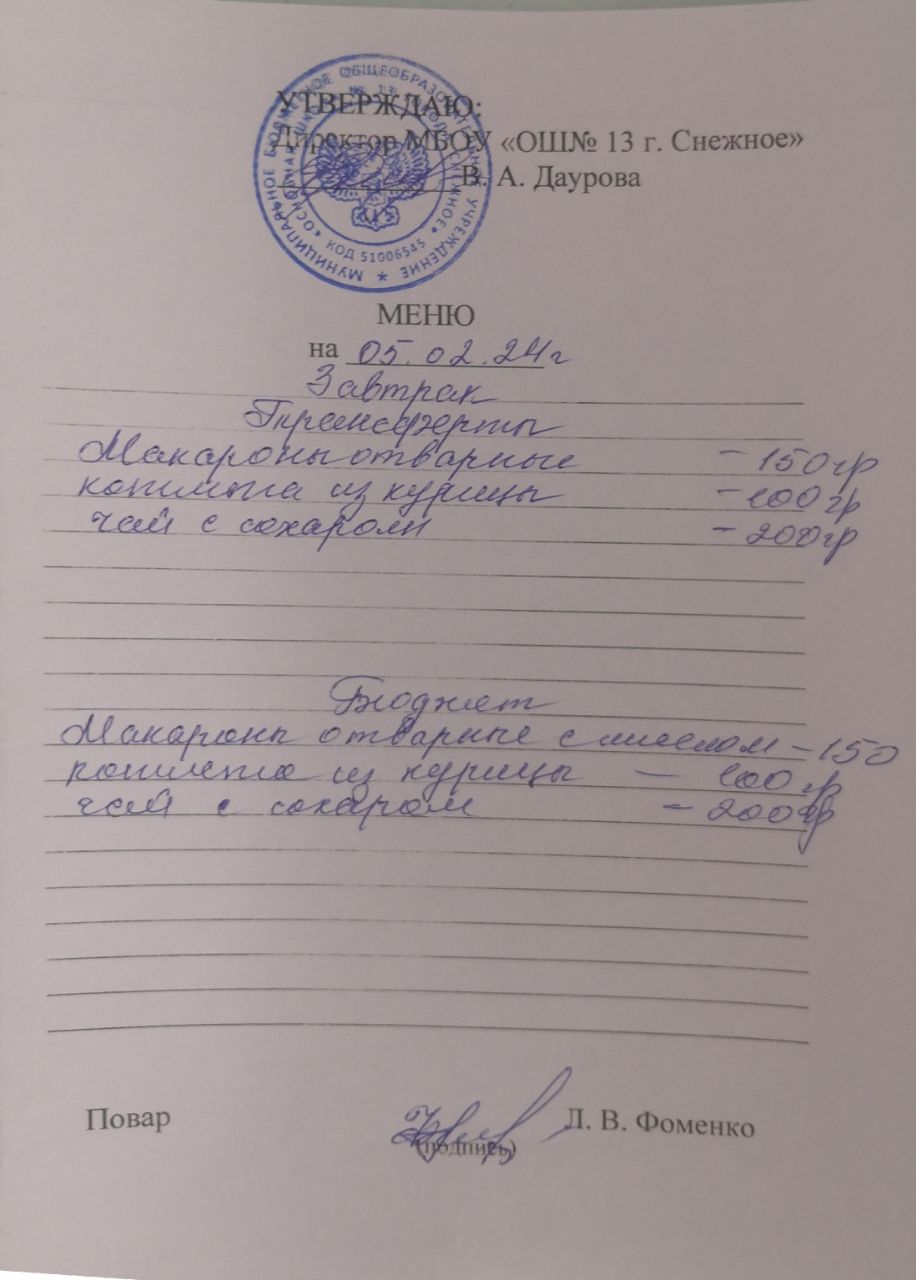 УТВЕРЖДАЮ:
Директор МБОУ «ОШ№ 13 г. Снежное»
В. А. Даурова
МУНИЦИПАЛЬНОЕ БЮДЖЕТНОЕ ОБЩЕОБРАЗОВАТЕЛЬНОЕ УЧРЕЖДЕНИЕ
КОД 51006545
МЕНЮ
на 05.02.24г
Завтрак
Трансферты
Макароны отварные - 150гр
котлета из курицы - 100гр
чай с сахаром - 200гр
Бюджет
Макароны отварные с маслом - 150
котлета из курицы - 100 гр
чай с сахаром - 200гр
Повар
Л. В. Фоменко
(подпись)